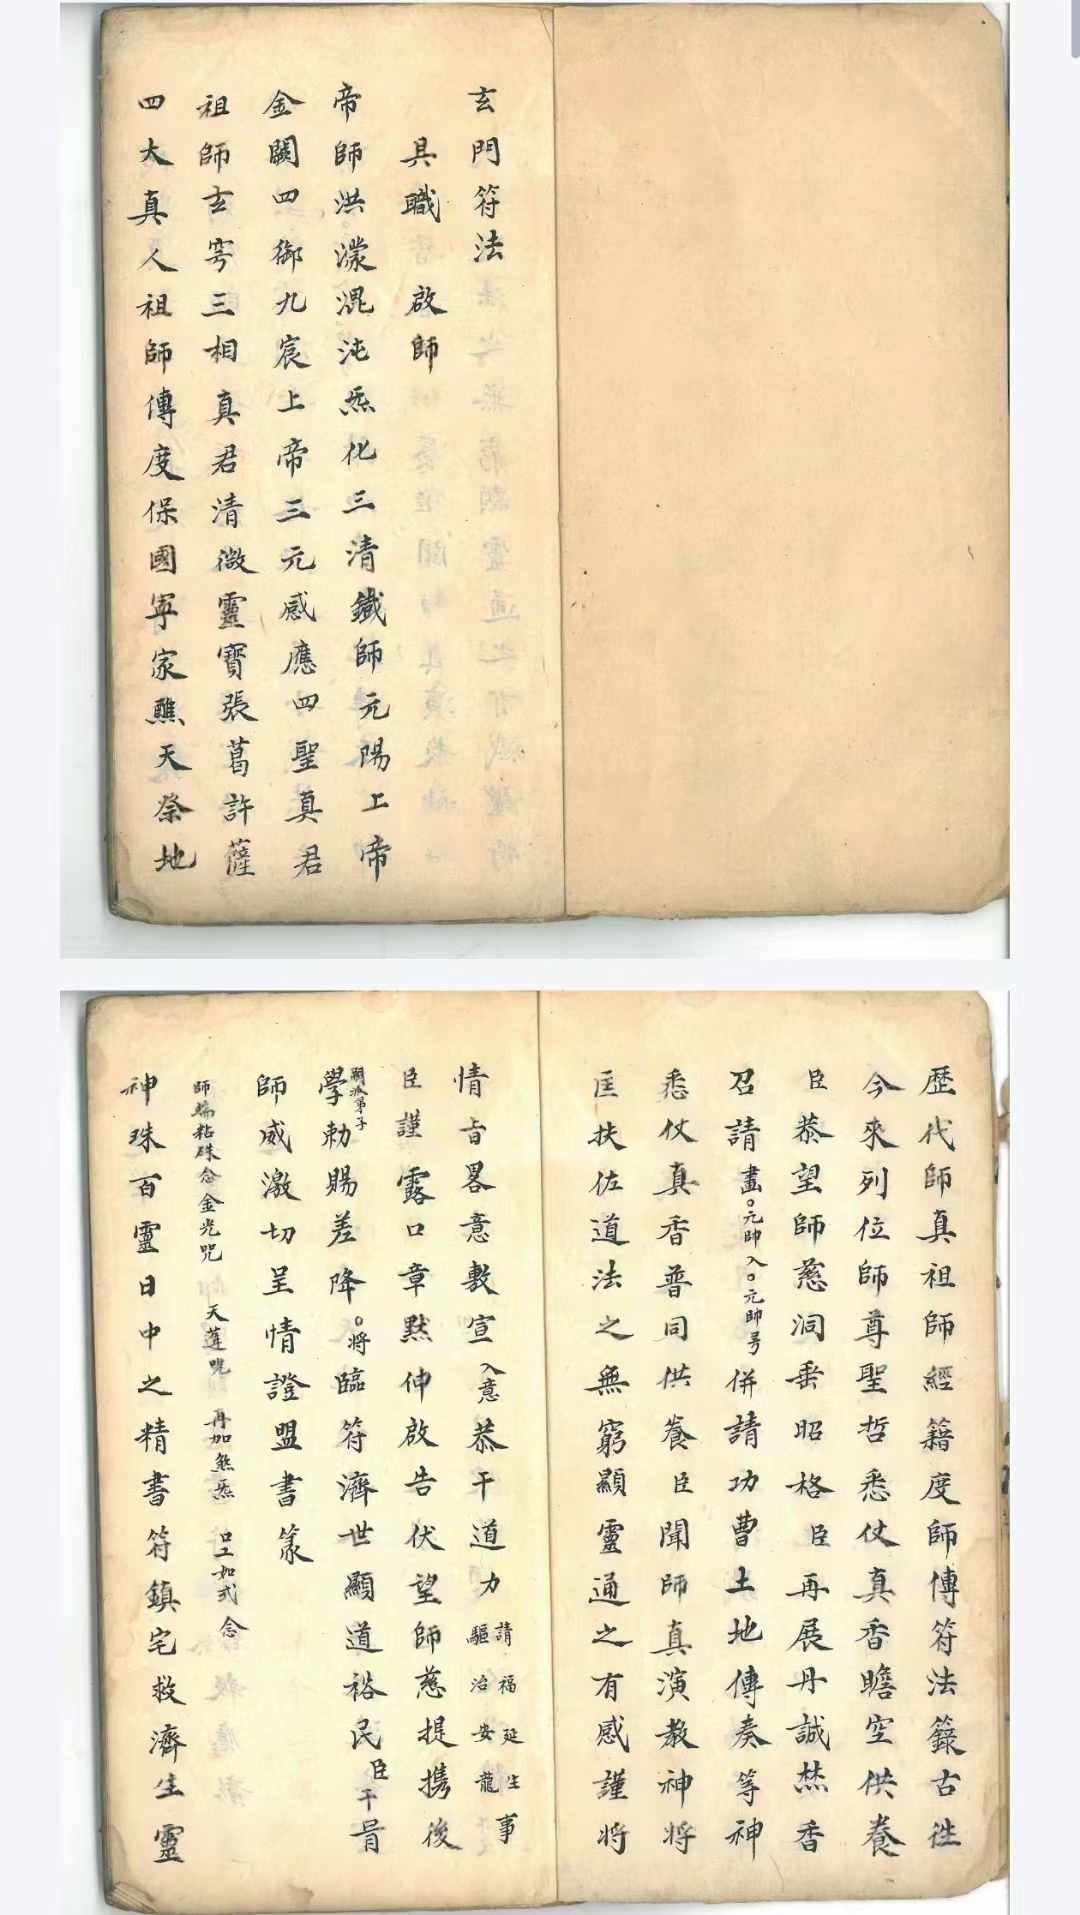 玄門符法
具職 啟師
帝師洪濛混沌炁化三清鐵師元陽上帝
金闕四御九宸上帝三元感應四聖真君
祖師玄穹三相真君清微靈寶張葛許薩
四大真人祖師傳度保國寧家醮天祭地
歷代師真祖師經籍度師傳符法籙古往
今來列位師尊聖哲悉仗真香瞻空供養
臣恭望師慈洞垂昭格臣再展丹誠焚香
召請畫○元帥入○元帥号併請功曹土地傳奏等神
悉仗真香普同供養臣聞師真演教神將
匡扶佐道法之無窮顯靈通之有感謹將
情旨畧意敷宣入意恭干道力請福延生驅治安龍事
臣謹露口章默伸啟告伏望師慈提携後
學嗣派弟子勅賜差降○將臨符濟世顯道裕民臣干冐
師威激切呈情證盟書篆
師牓粘硃念金光咒 天蓬咒 再如煞炁 口工如式念
神珠百靈日中之精書符鎮宅救濟生靈